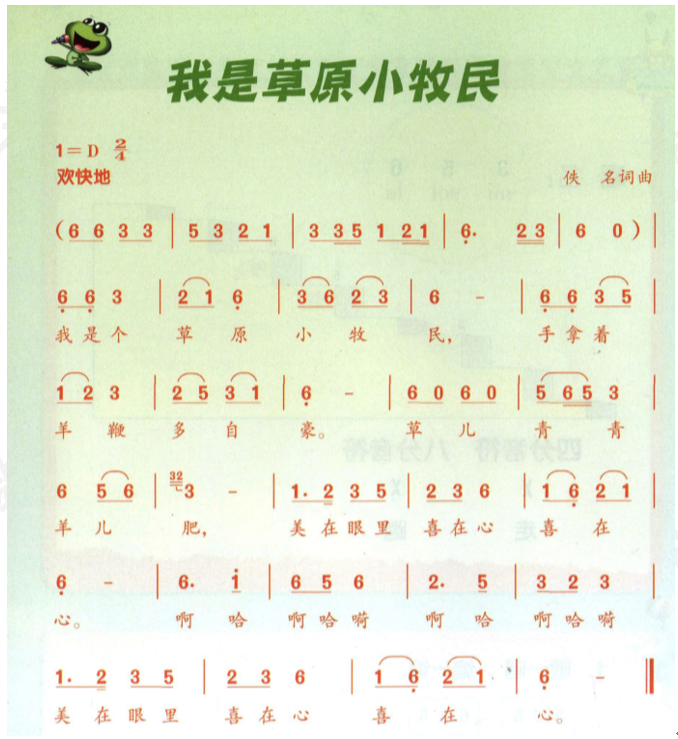 我是草原小牧民
1=D 2/4
欢快地 佚 名词曲
(6 6 3 3 | 5 3 2 1 | 3 3 5 1 2 1 | 6· 2 3 | 6 0 ) |
6 6 3 | 2 1 6 | 3 6 2 3 | 6 - | 6 6 3 5 |
我 是 个 草 原 小 牧 民, 手 拿 着
1 2 3 | 2 5 3 1 | 6 - | 6 0 6 0 | 5 6 5 3 |
羊 鞭 多 自 豪。 草 儿 青 青
6 5 6 | 32 3 - | 1· 2 3 5 | 2 3 6 | 1 6 2 1 |
羊 儿 肥, 美 在 眼 里 喜 在 心 喜 在
6 - | 6· 1 | 6 5 6 | 2· 5 | 3 2 3 |
心。 啊 哈 啊 哈 嗬 啊 哈 啊 哈 嗬
1· 2 3 5 | 2 3 6 | 1 6 2 1 | 6 - ‖
美 在 眼 里 喜 在 心 喜 在 心。